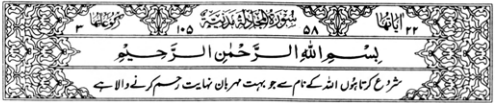 اٰیَاتُهَا ۲۲ ۵۸ سُوْرَةُ الْمُجَادَلَةِ مَدَنِیَّةٌ ۱۰۵ رُكُوْعَاتُهَا ۳
بِسْمِ اللهِ الرَّحْمٰنِ الرَّحِیْمِ
شروع کرتا ہوں اللہ کے نام سے جو بہت مہربان نہایت رحم کرنے والا ہے